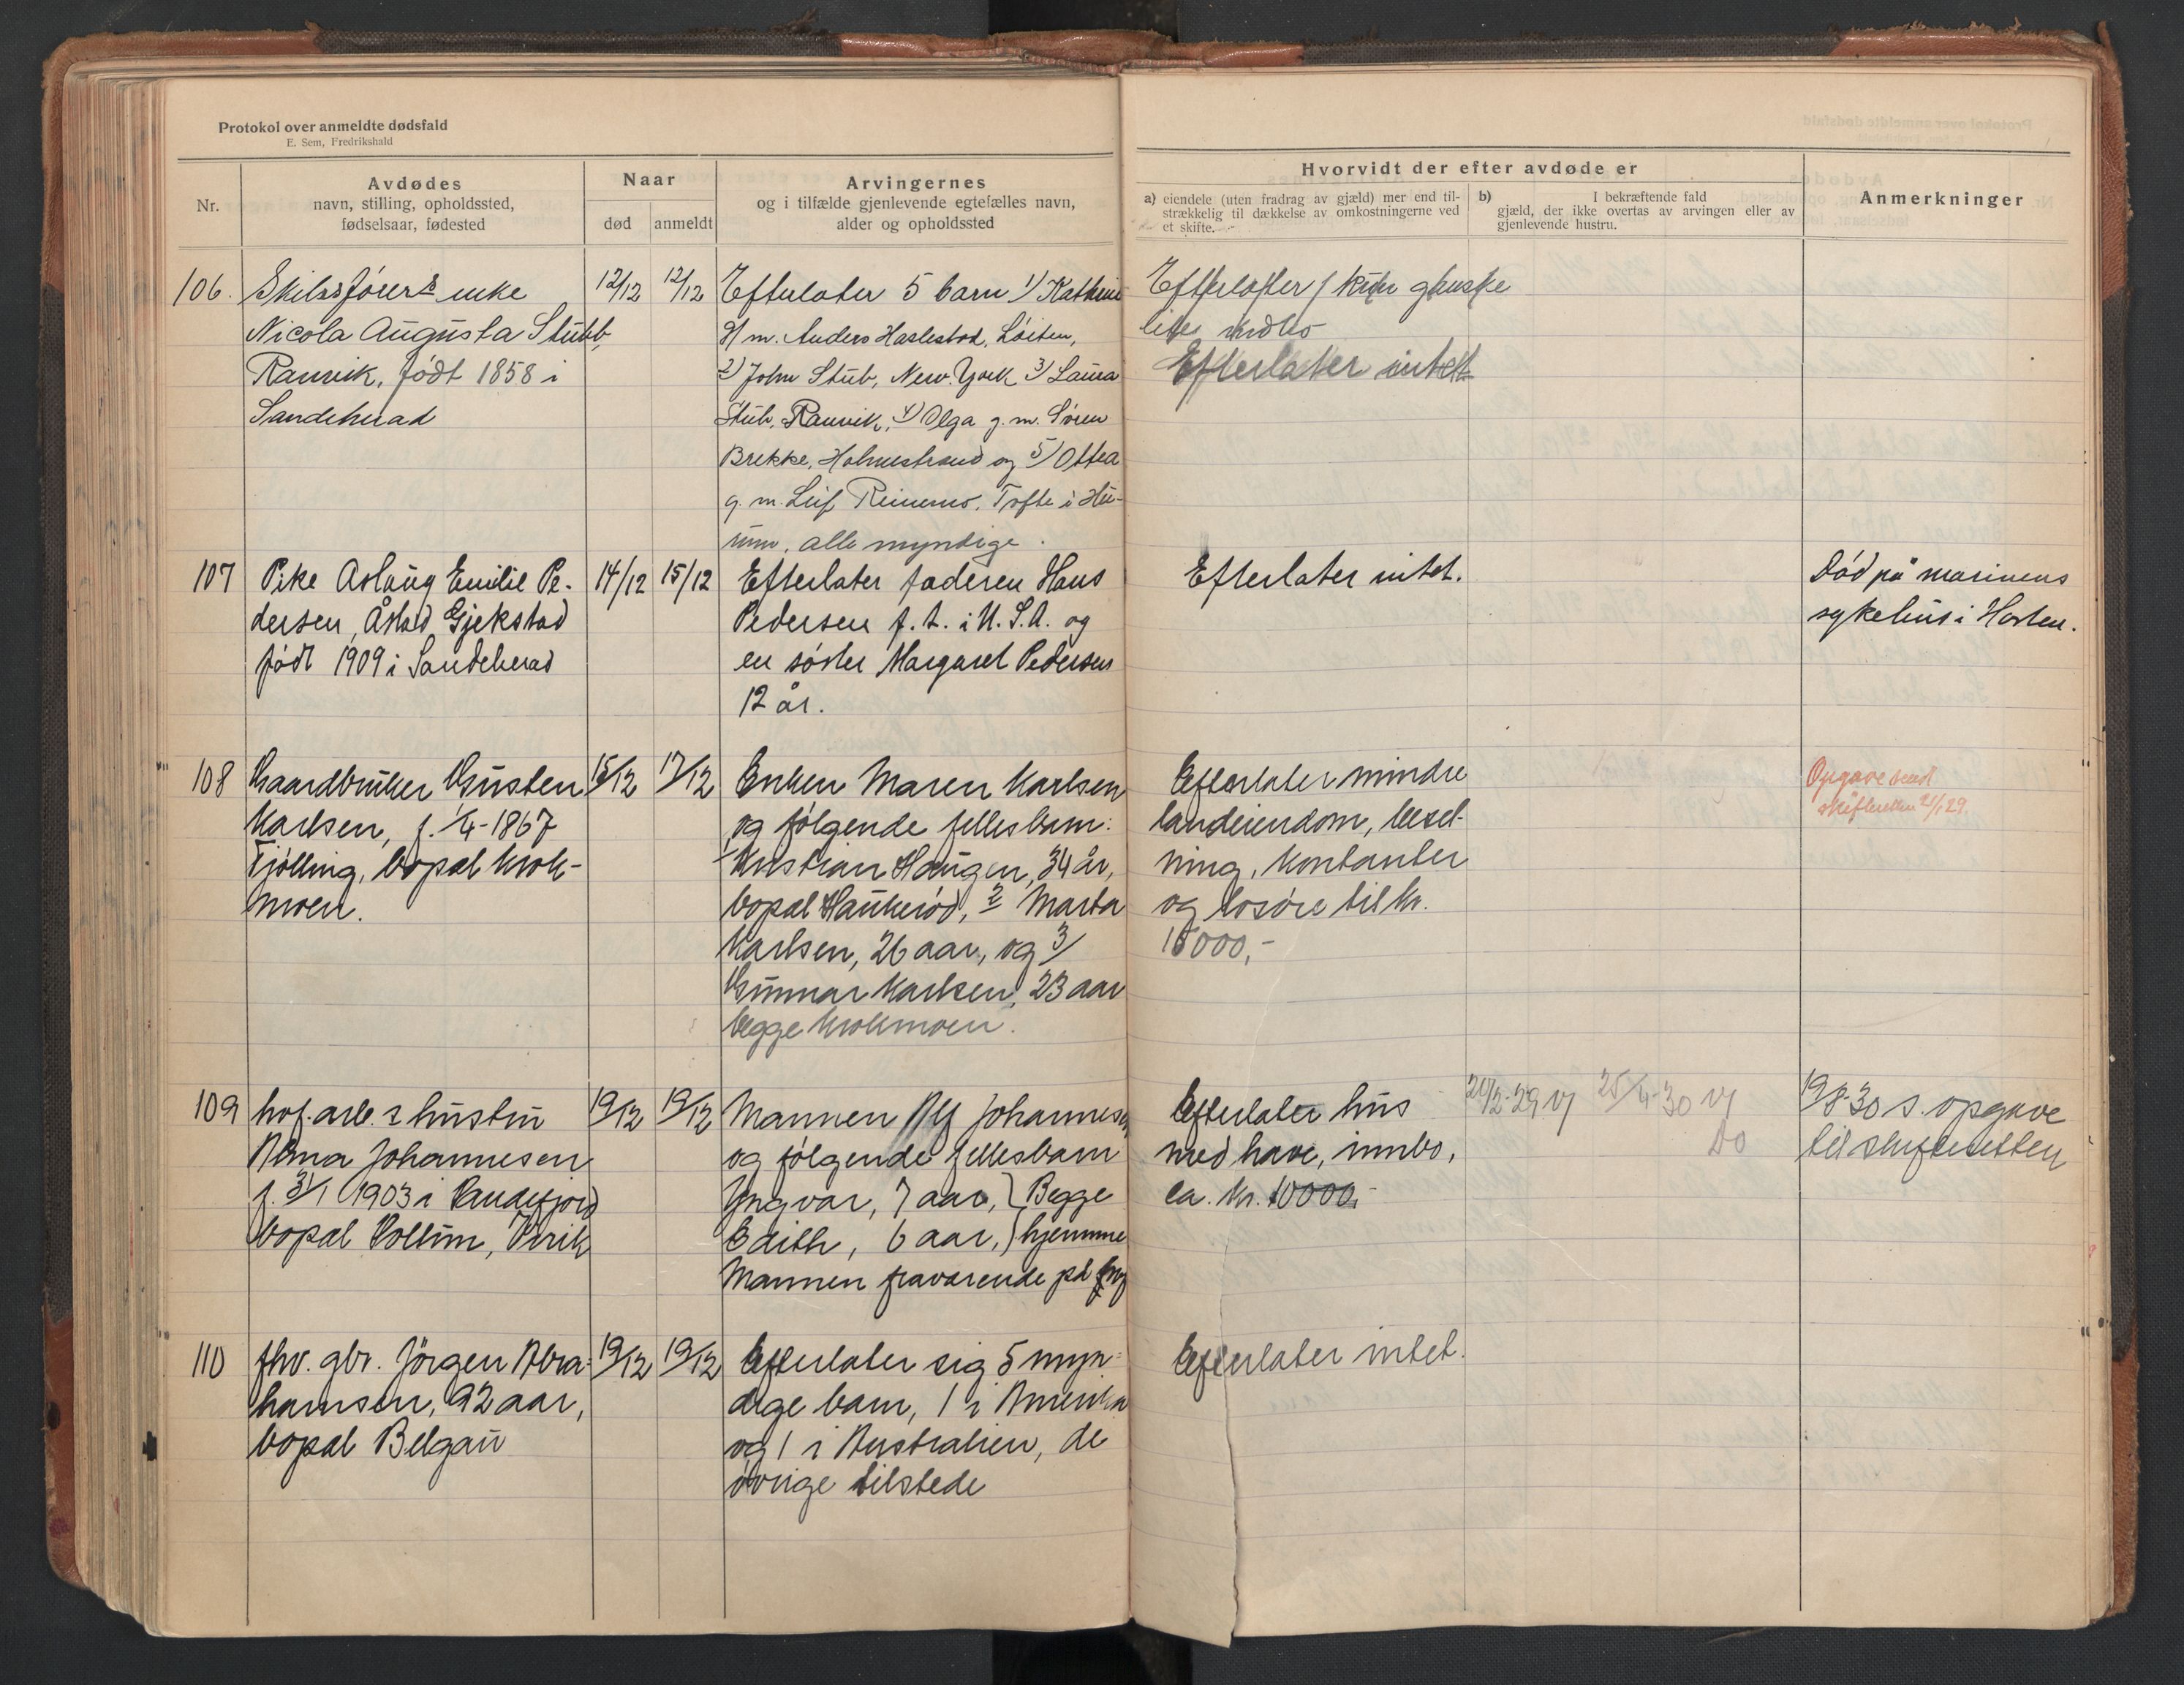 Protokol over anmeldte dødsfald
E. Sem, Fredrikshald
Nr.
Avdødes
navn, stilling, opholdssted,
fødselsaar, fødested
Naar
død
anmeldt
Arvingernes
og i tilfælde gjenlevende egtefælles navn,
alder og opholdssted
Hvorvidt der efter avdøde er
a) eiendele (uten fradrag av gjæld) mer end til-
strækkelig til dækkelse av omkostningerne ved
et skifte.
b) I bekræftende fald
gjæld, der ikke overtas av arvingen eller av
gjenlevende hustru.
Anmerkninger
106.
Skibsførers enke
Nicola Augusta Stubb,
Ranvik, født 1858 i
Sandeherad
12/12
12/12
Efterlater 5 barn 1) Kathrine
g/m. Anders Haslestad, Løiten,
2) John Stub, New. York 3) Laura
Stub, Ranvik, 4) Olga g. m. Søren
Brekke, Holmestrand og 5) Othea
g. m. Leif Reinemo, Tofte i Hu-
rum, alle myndige.
Efterlater kun ganske
litet indbo
Efterlater intet
107
Pike Aslaug Emilie Pe-
dersen, Åstad Gjekstad
født 1909 i Sandeherad
14/12
15/12
Efterlater faderen Hans
Pedersen f. t. i U.S.A. og
en søster Margaret Pedersen
12 år.
Efterlater intet.
Død på marinens
sykehus i Horten.
108
Gaardbruker Gusten
Karlsen, f. 1/4-1867
Tjølling, bopæl Krok-
moen.
15/12
17/12
Enken Maren Karlsen
og følgende fellesbarn:
Kristian Haugen, 34 år,
bopæl Haukerød, 2 Marta
Karlsen, 26 aar, og 3/
Gunnar Karlsen, 23 aar
begge Krokmoen.
Efterlater mindre
landeiendom, besel-
ning, kontanter
og løsøre til kr.
15000,-
Opgave sendt
skifteretten 21/1 29.
109
hvf. arb.s hustru
Alma Johannesen
f. 31/1 1903 i Sandefjord
bopæl Vollum, Virik
19/12
19/12
Mannen Alf Johannesen
og følgende fellesbarn
Yngvar, 7 aar, } Begge
Edith, 6 aar, } hjemme
Mannen fraværende på fngst
Efterlater hus
med have, innbo,
ca. kr. 10000,-
20/2-29 Vj 25/4-30 Vj
Do
19/8-30 s. opgave
til skifteretten
110
fhv. gbr. Jörgen Abra-
hamsen, 92 aar,
bopæl Belgau
19/12
19/12
Efterlater sig 5 myn-
dige barn, 1 i Amerika
og 1 i Australien, de
øvrige tilstede
Efterlater intet.